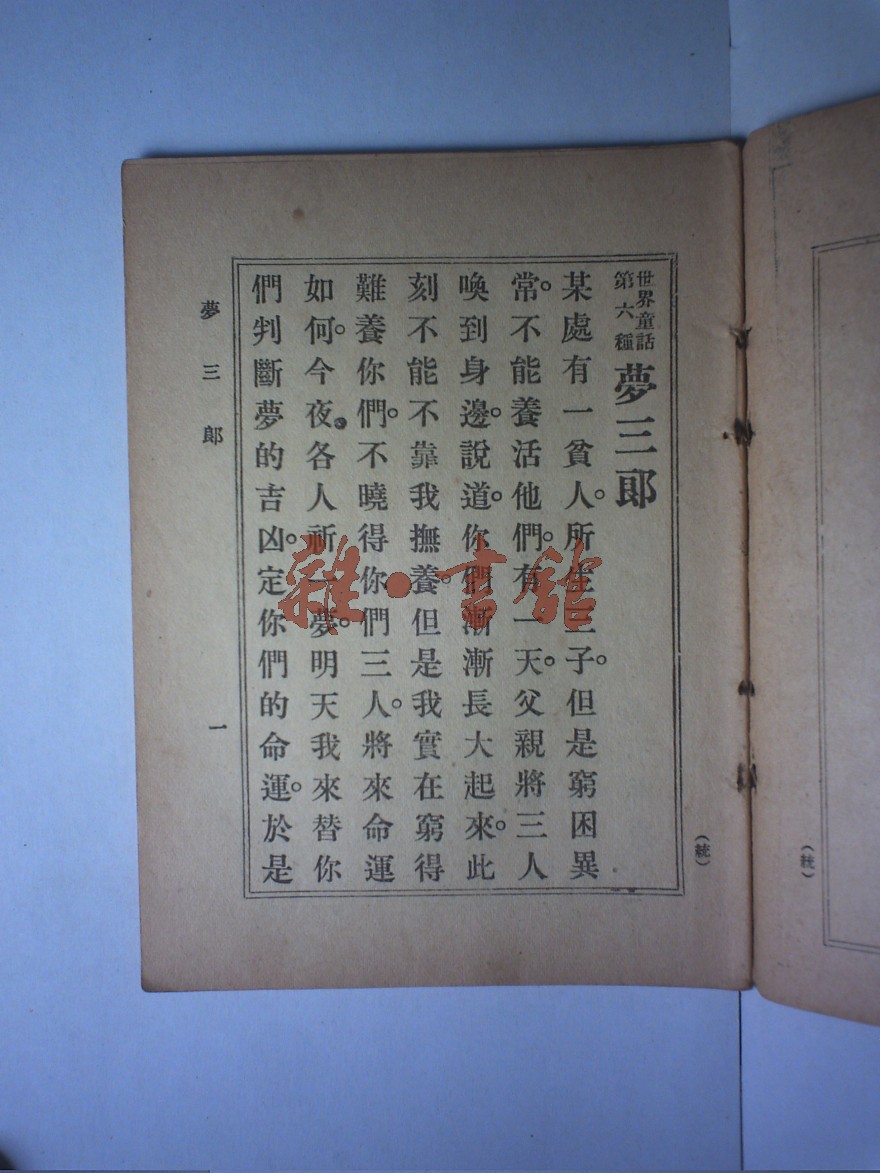 世界童話
第六種
夢三郎
某處有一貧人。所生三子。但是窮困異
常。不能養活他們。有一天。父親將三人
喚到身邊。說道。你們漸漸長大起來。此
刻不能不靠我撫養。但是我實在窮得
難養你們。不曉得你們三人。將來命運
如何。今夜。各人祈一夢。明天我來替你
們判斷夢的吉凶。定你們的命運。於是
夢三郎
一
(統)
(統)
雜·書館